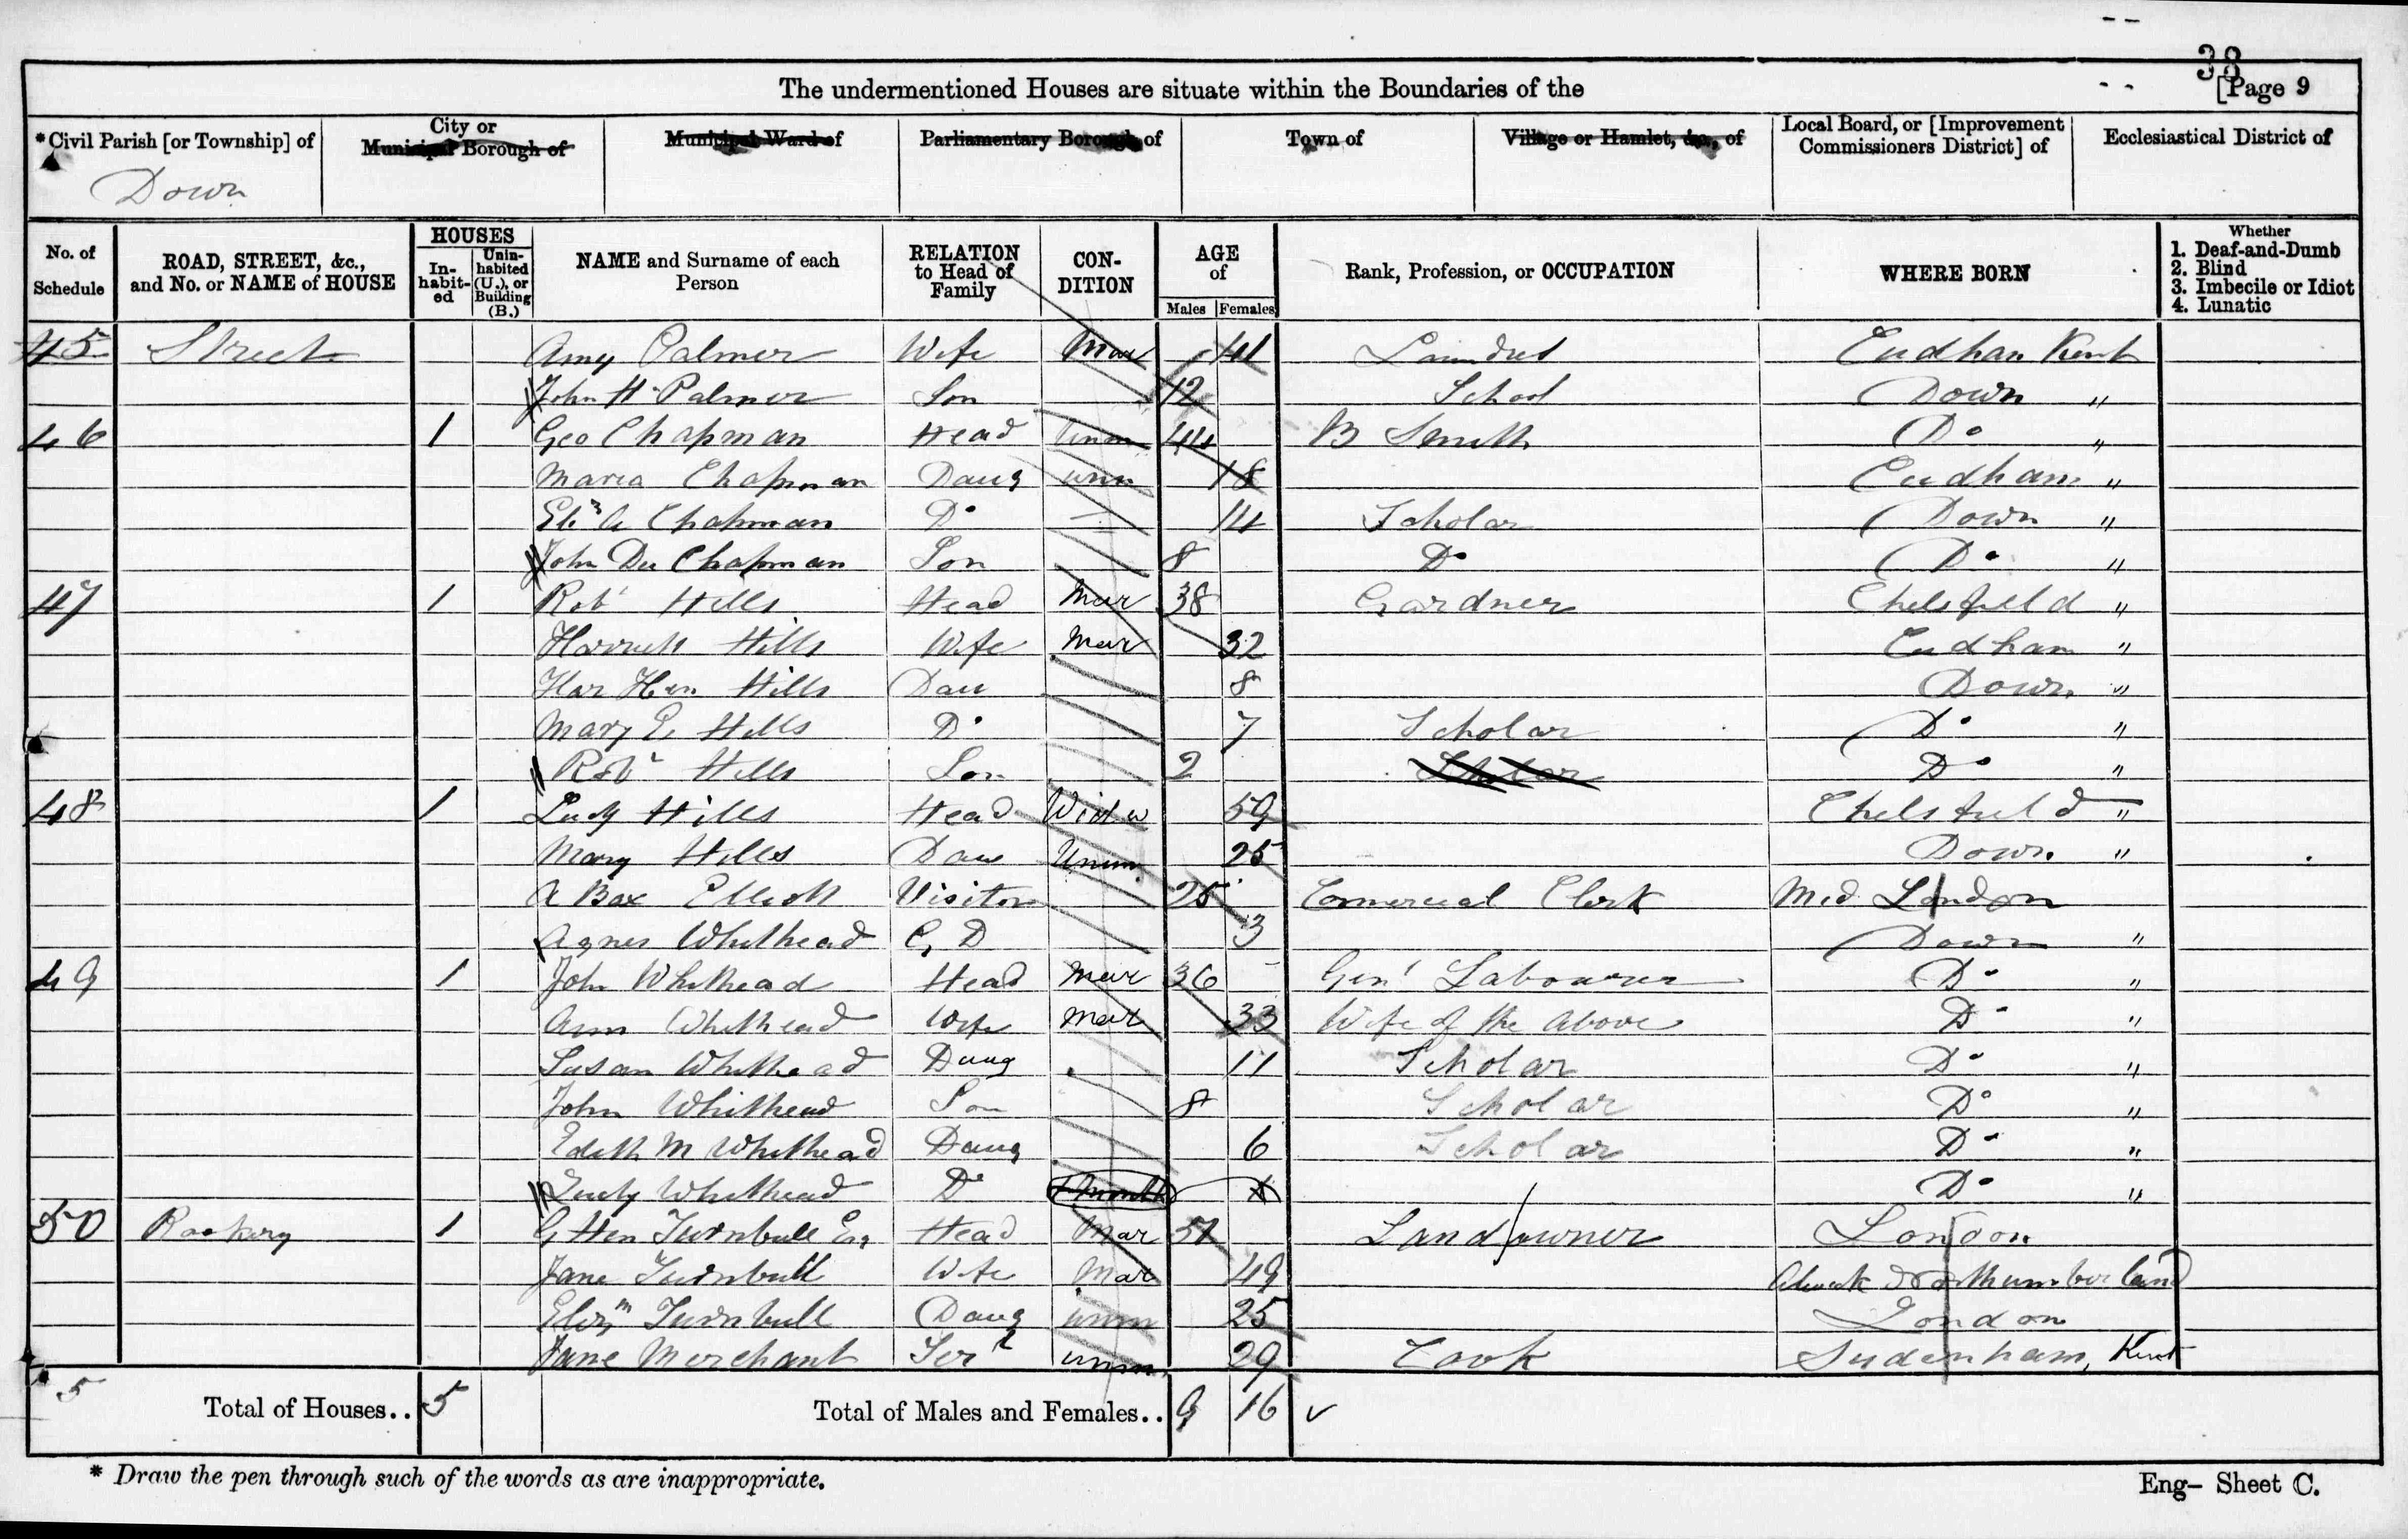 38
The undermentioned Houses are situate within the Boundaries of the [Page 9
*Civil Parish [or Township] of City or Municipal Borough of Municipal Ward of Parliamentary Borough of Town of Village or Hamlet, &c., of Local Board, or [Improvement Commissioners District] of Ecclesiastical District of
Down
No. of Schedule ROAD, STREET, &c., and No. or NAME of HOUSE HOUSES Inhabited Uninhabited (U.), or Building (B.) NAME and Surname of each Person RELATION to Head of Family CONDITION AGE of Males Females Rank, Profession, or OCCUPATION WHERE BORN Whether 1. Deaf-and-Dumb 2. Blind 3. Imbecile or Idiot 4. Lunatic
45 Street Amy Palmer Wife Mar 41 Kent
John H Palmer Son 12 School Down "
46 1 Geo Chapman Head 44 B Smith Do "
Maria Chapman Daug unm 18 Cudham "
Chapman Do 14 Scholar Down "
John Chapman Son 8 Do Do "
47 1 Robt Hills Head Mar 38 Gardner Chelsfield "
Hills Wife Mar 32 Cudham "
Har Hen Hills Dau 8 Down "
Mary E Hills Do 7 Scholar Do "
Robt Hills Son 2 Scholar Do "
48 1 Hills Head Widw 59 Chelsfield "
Mary Hills Dau Unm 25 Down "
A Box Visitor 25 Comercial Clerk Mid London
Agnes Whithead G D 3 Down "
49 1 John Whithead Head Mar 36 Genl Labourer Do "
Ann Whithead Wife Mar 33 Wife of the above Do "
Susan Whithead Daug 11 Scholar Do "
John Whithead Son 8 Scholar Do "
Edith M Whithead Daug 6 Scholar Do "
Whithead Do Do "
50 Rookery 1 G Hen Turnbull Esq Head Mar 51 Landowner London
Jane Turnbull Wife Mar 49 Northumberland
Turnbull Daug unm 25 London
Jane Merchant Sert unm 29 Cook Sudenham, Kent
5 Total of Houses.. 5 Total of Males and Females.. 9 16
* Draw the pen through such of the words as are inappropriate.
Eng- Sheet C.